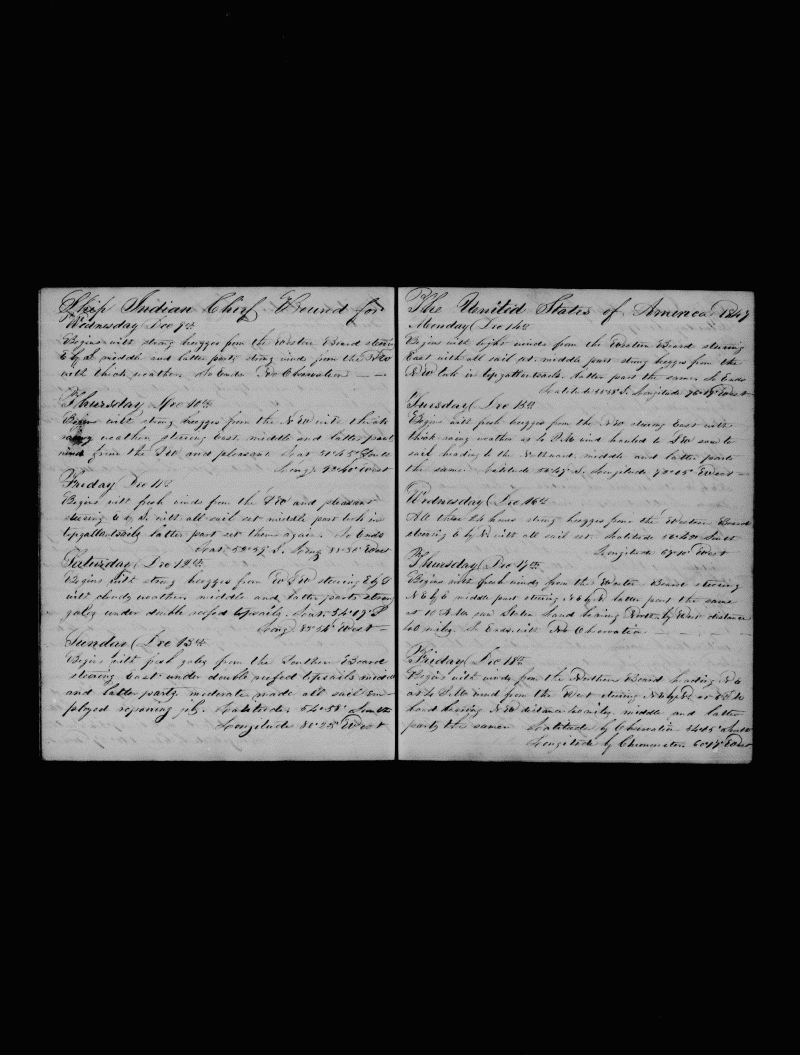 Ship Indian Chief Bound for
Wednesday Dec 9th
Begins with strong breezes from the Western Board steering
E by S middle and latter parts strong winds from the NW
with thick weather. So Ends No Observation
Thursday Dec 10th
Begins with strong breezes from the NW with thick
rainy weather, steering East. middle and latter part
wind from the SW and pleasant Lat South
Long West
Friday Dec 11th
Begins with fresh winds from the SW and pleasant
steering E by S. with all sail set middle part took in
topgallantsails latter part set them again. So Ends
Lat S. Long West
Saturday Dec 12th
Begins with strong breezes from WSW steering E by S
with cloudy weather middle and latter parts strong
gales under double reefed topsails. Lat. 54°09' S
Long West
Sunday Dec 13th
Begins with fresh gales from the Southern Board
steering East under double reefed topsails middle
and latter parts moderate made all sail em-
ployed repairing jib. Latitude. 54°58' South
Longitude West
The United States of America 1847
Monday Dec 14th
Begins with light winds from the Western Board steering
East with all sail set. middle part strong breezes from the
NW took in topgallantsails. latter part the same So Ends
Latitude S. Longitude West
Tuesday Dec 15th
Begins with fresh breezes from the NW steering East with
thick rainy weather at PM wind hauled to SW came to
sail heading to the Northward. middle and latter parts
the same. Latitude S. Longitude West
Wednesday Dec 16th
All these 24 hours strong breezes from the Western Board
steering E by N with all sail set. Latitude South
Longitude 67°10' West
Thursday Dec 17th
Begins with fresh winds from the Western Board steering
N E by E middle part steering N E by N latter part the same
at 10 AM saw Staten Land bearing North by West distance
miles. So Ends with No Observation
Friday Dec 18th
Begins with winds from the Northern Board heading N E
at 4 PM wind from the West steering N E by N at
land bearing NW distance middle and latter
parts the same Latitude by Observation South
Longitude by Chronometer West